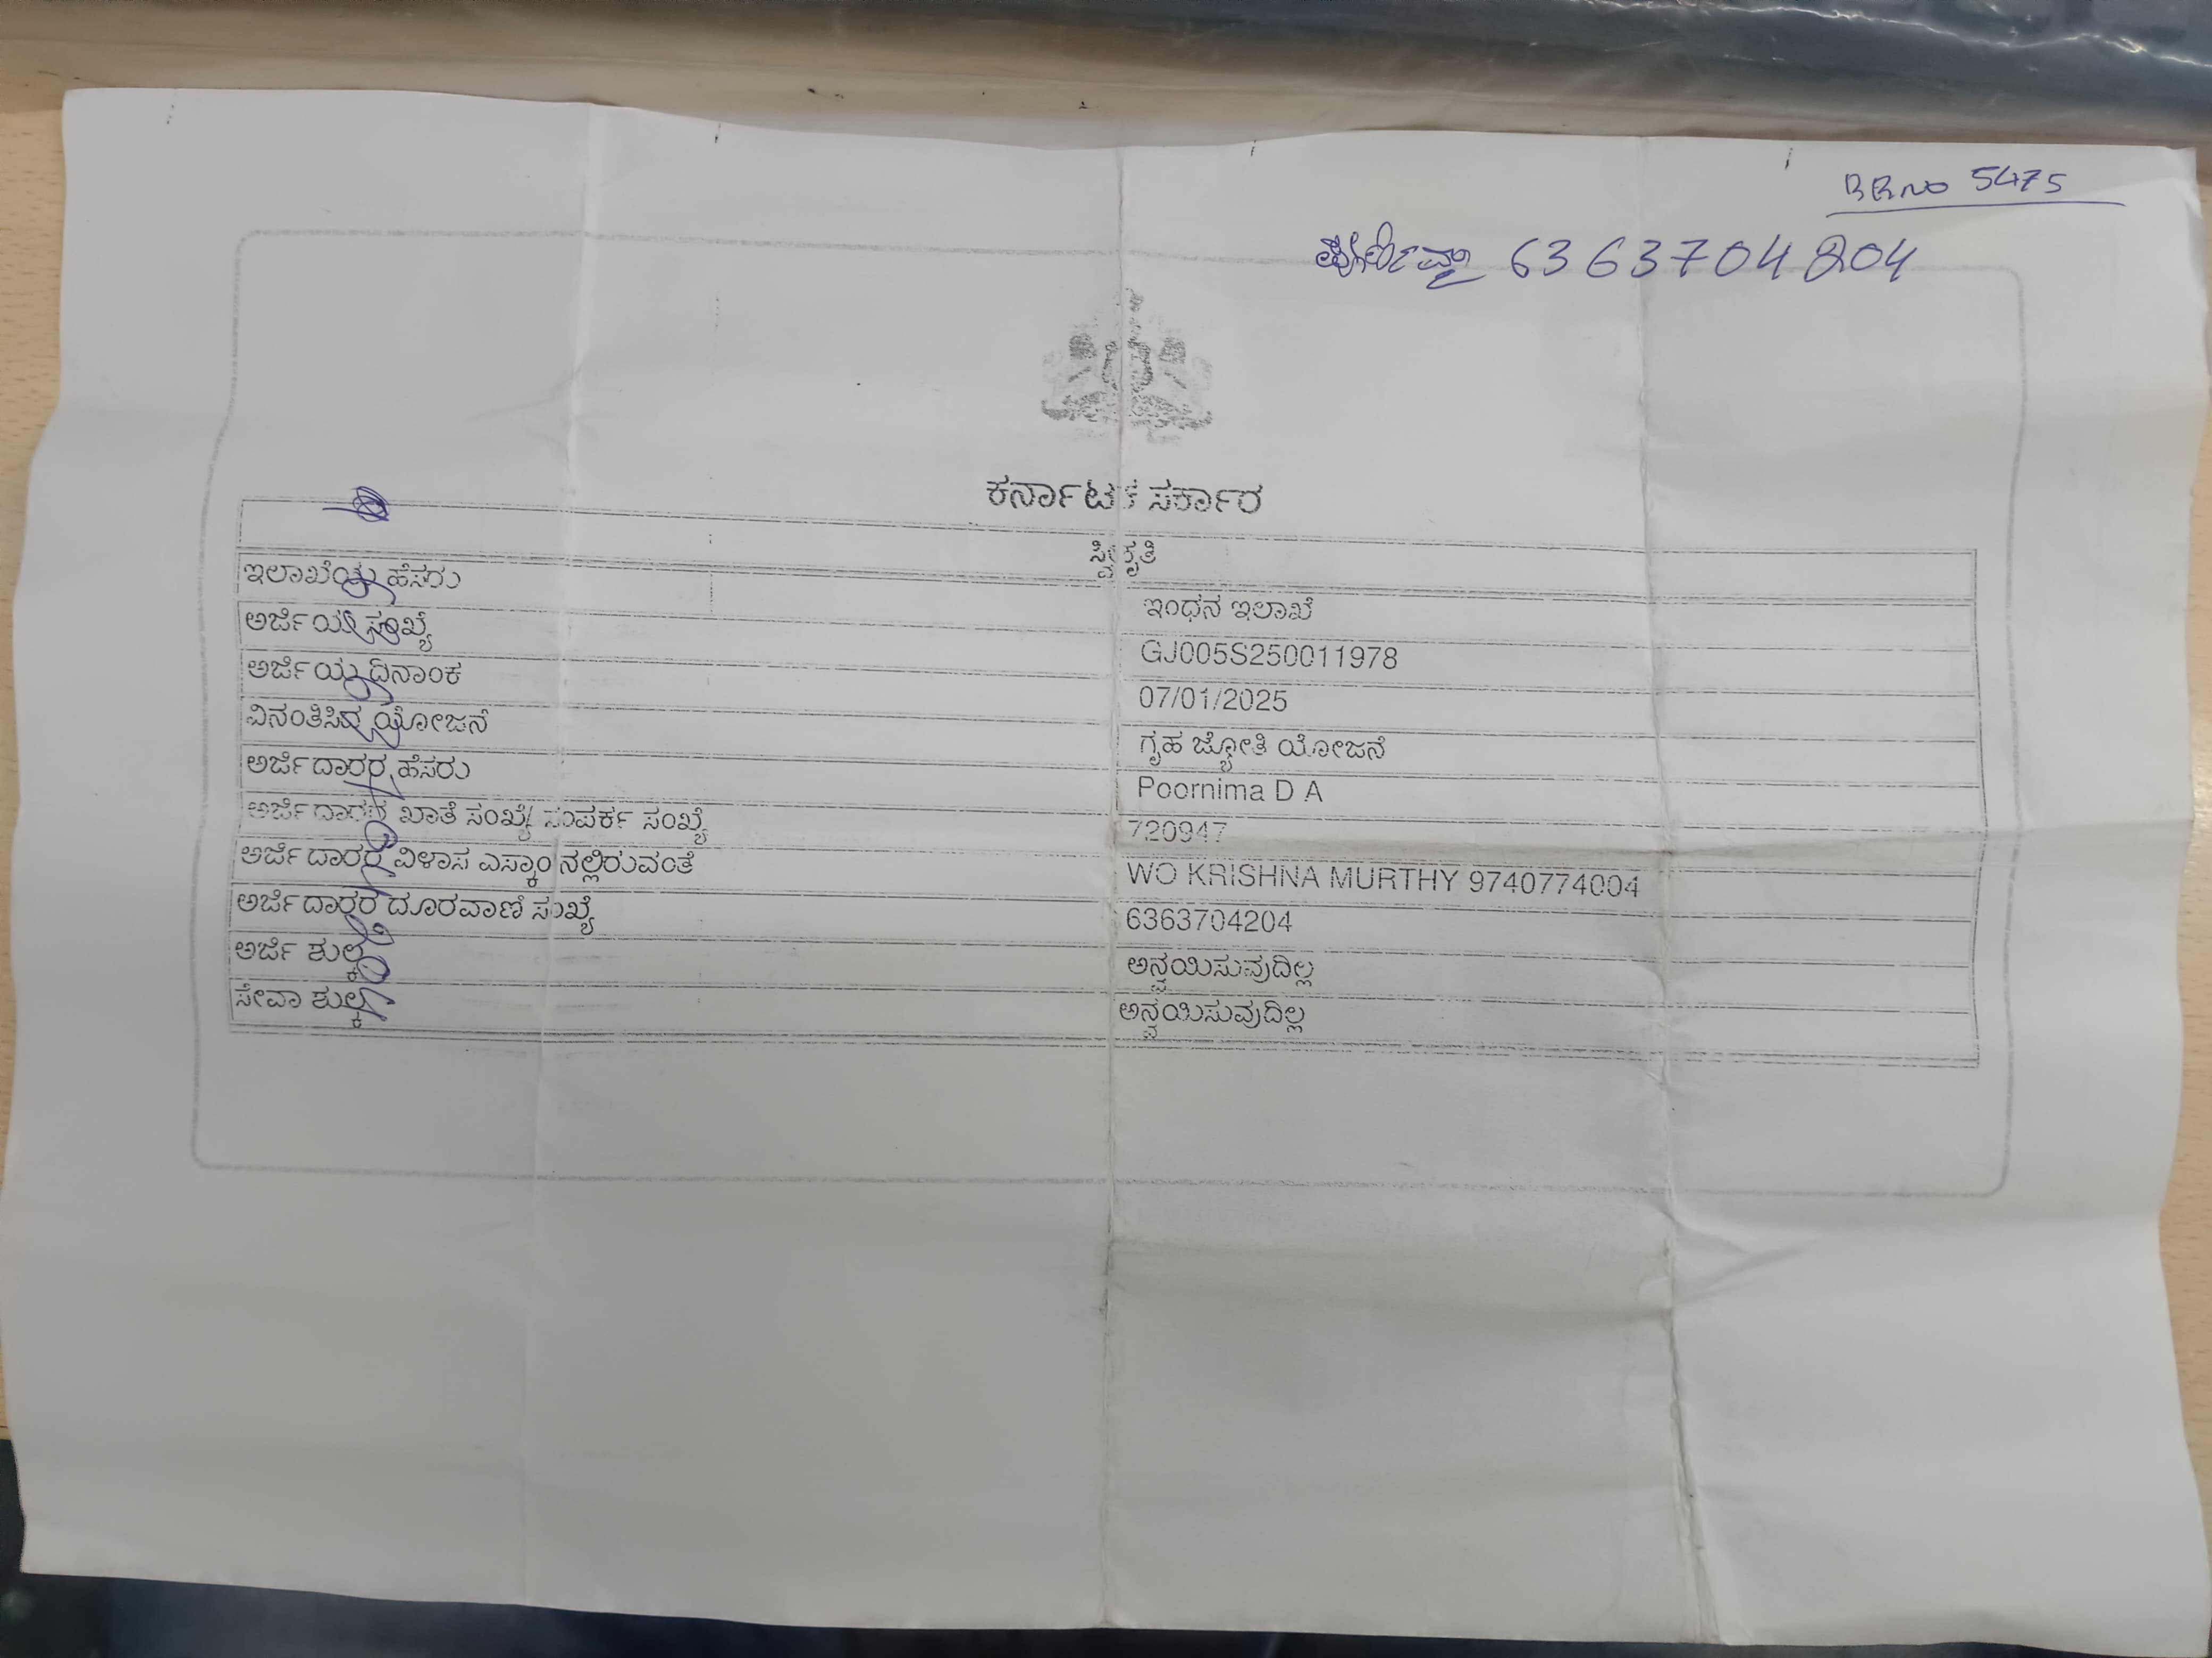 RR NO 5475
ಪೂರ್ಣಿಮಾ 6363704204
ಕರ್ನಾಟಕ ಸರ್ಕಾರ
ಸ್ವೀಕೃತಿ
ಇಲಾಖೆಯ ಹೆಸರು ಇಂಧನ ಇಲಾಖೆ
ಅರ್ಜಿಯ ಸಂಖ್ಯೆ GJ005S250011978
ಅರ್ಜಿಯ ದಿನಾಂಕ 07/01/2025
ವಿನಂತಿಸಿದ ಯೋಜನೆ ಗೃಹ ಜ್ಯೋತಿ ಯೋಜನೆ
ಅರ್ಜಿದಾರರ ಹೆಸರು Poornima D A
ಅರ್ಜಿದಾರರ ಖಾತೆ ಸಂಖ್ಯೆ/ ಸಂಪರ್ಕ ಸಂಖ್ಯೆ 720947
ಅರ್ಜಿದಾರರ ವಿಳಾಸ ಎಸ್ಕಾಂ ನಲ್ಲಿರುವಂತೆ WO KRISHNA MURTHY 9740774004
ಅರ್ಜಿದಾರರ ದೂರವಾಣಿ ಸಂಖ್ಯೆ 6363704204
ಅರ್ಜಿ ಶುಲ್ಕ ಅನ್ವಯಿಸುವುದಿಲ್ಲ
ಸೇವಾ ಶುಲ್ಕ ಅನ್ವಯಿಸುವುದಿಲ್ಲ